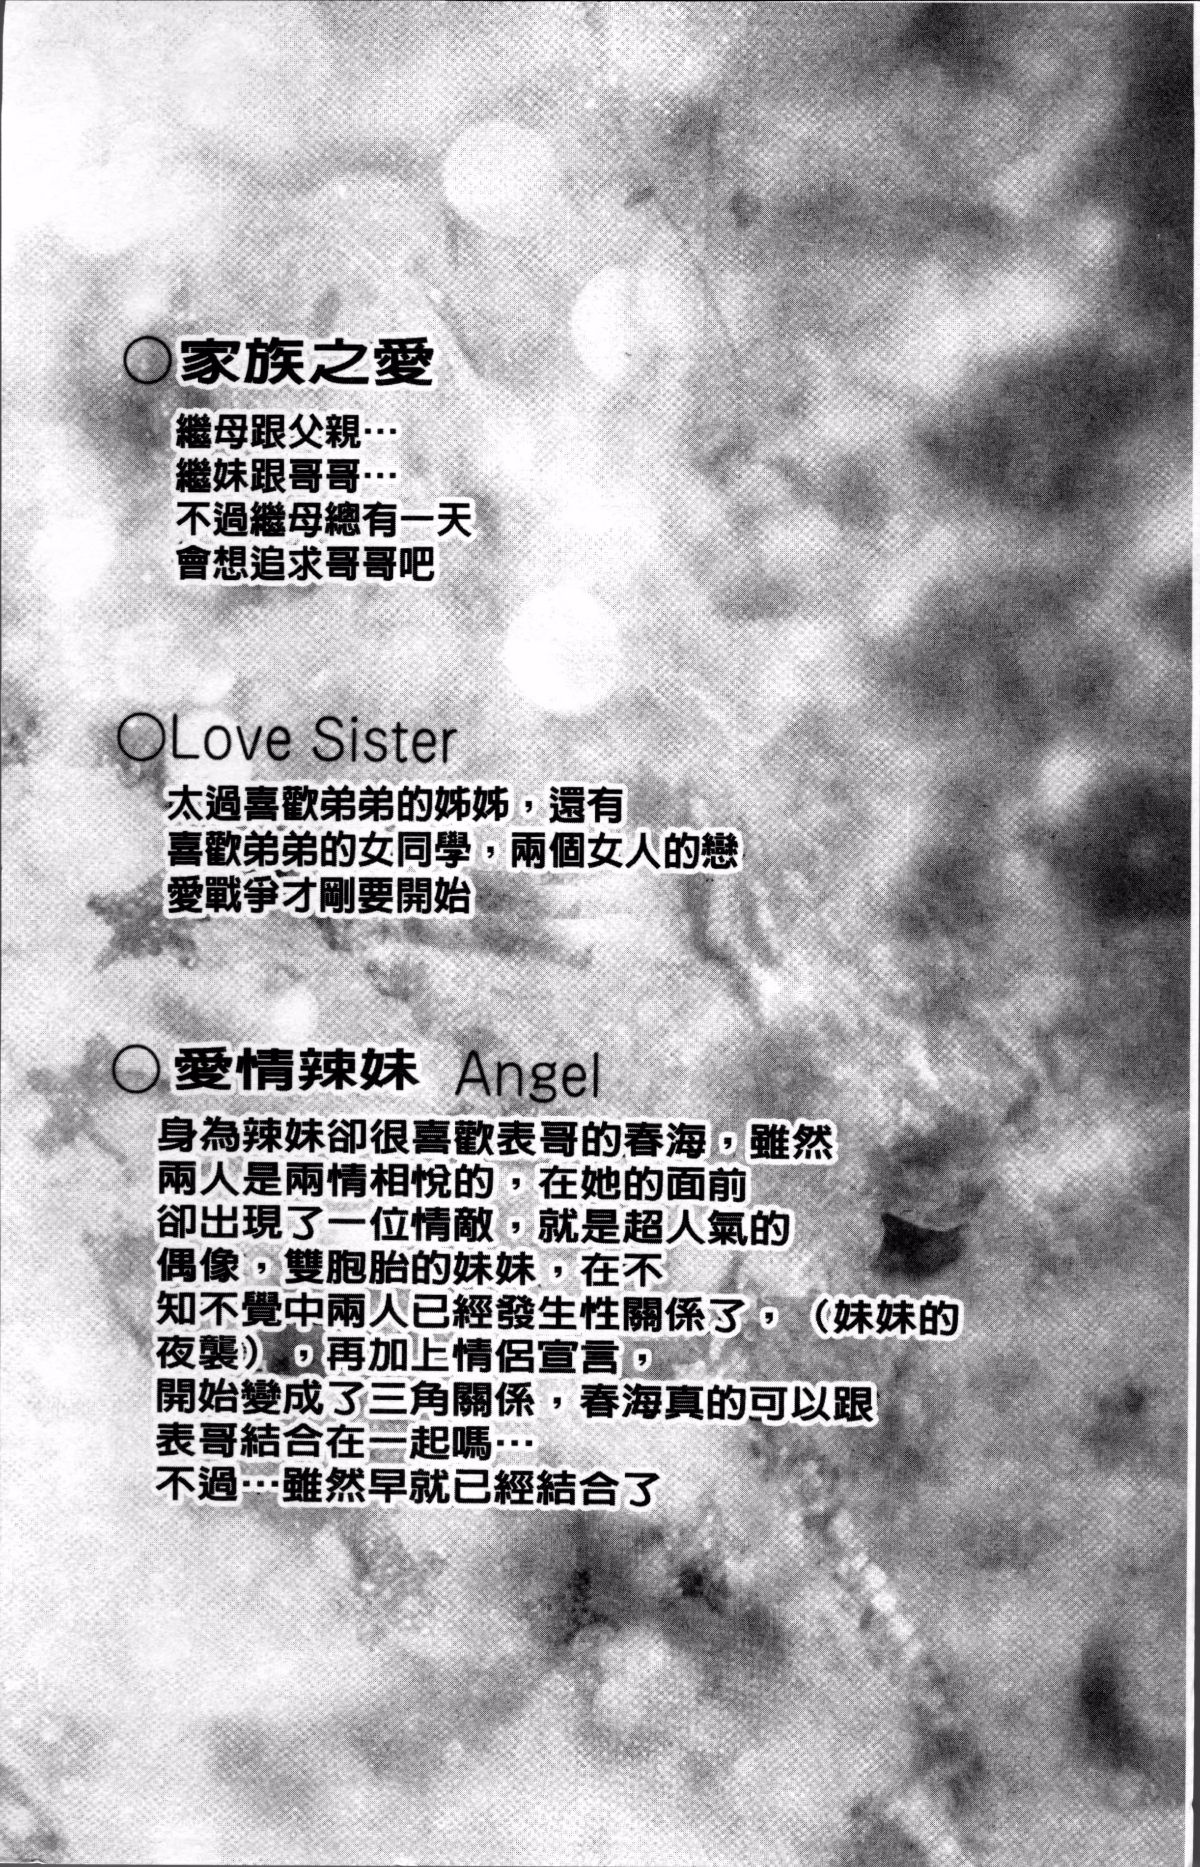 ○家族之愛
繼母跟父親…
繼妹跟哥哥…
不過繼母總有一天
會想追求哥哥吧
○Love Sister
太過喜歡弟弟的姊姊，還有
喜歡弟弟的女同學，兩個女人的戀
愛戰爭才剛要開始
○愛情辣妹 Angel
身為辣妹卻很喜歡表哥的春海，雖然
兩人是兩情相悅的，在她的面前
卻出現了一位情敵，就是超人氣的
偶像，雙胞胎的妹妹，在不
知不覺中兩人已經發生性關係了，（妹妹的
夜襲），再加上情侶宣言，
開始變成了三角關係，春海真的可以跟
表哥結合在一起嗎…
不過…雖然早就已經結合了